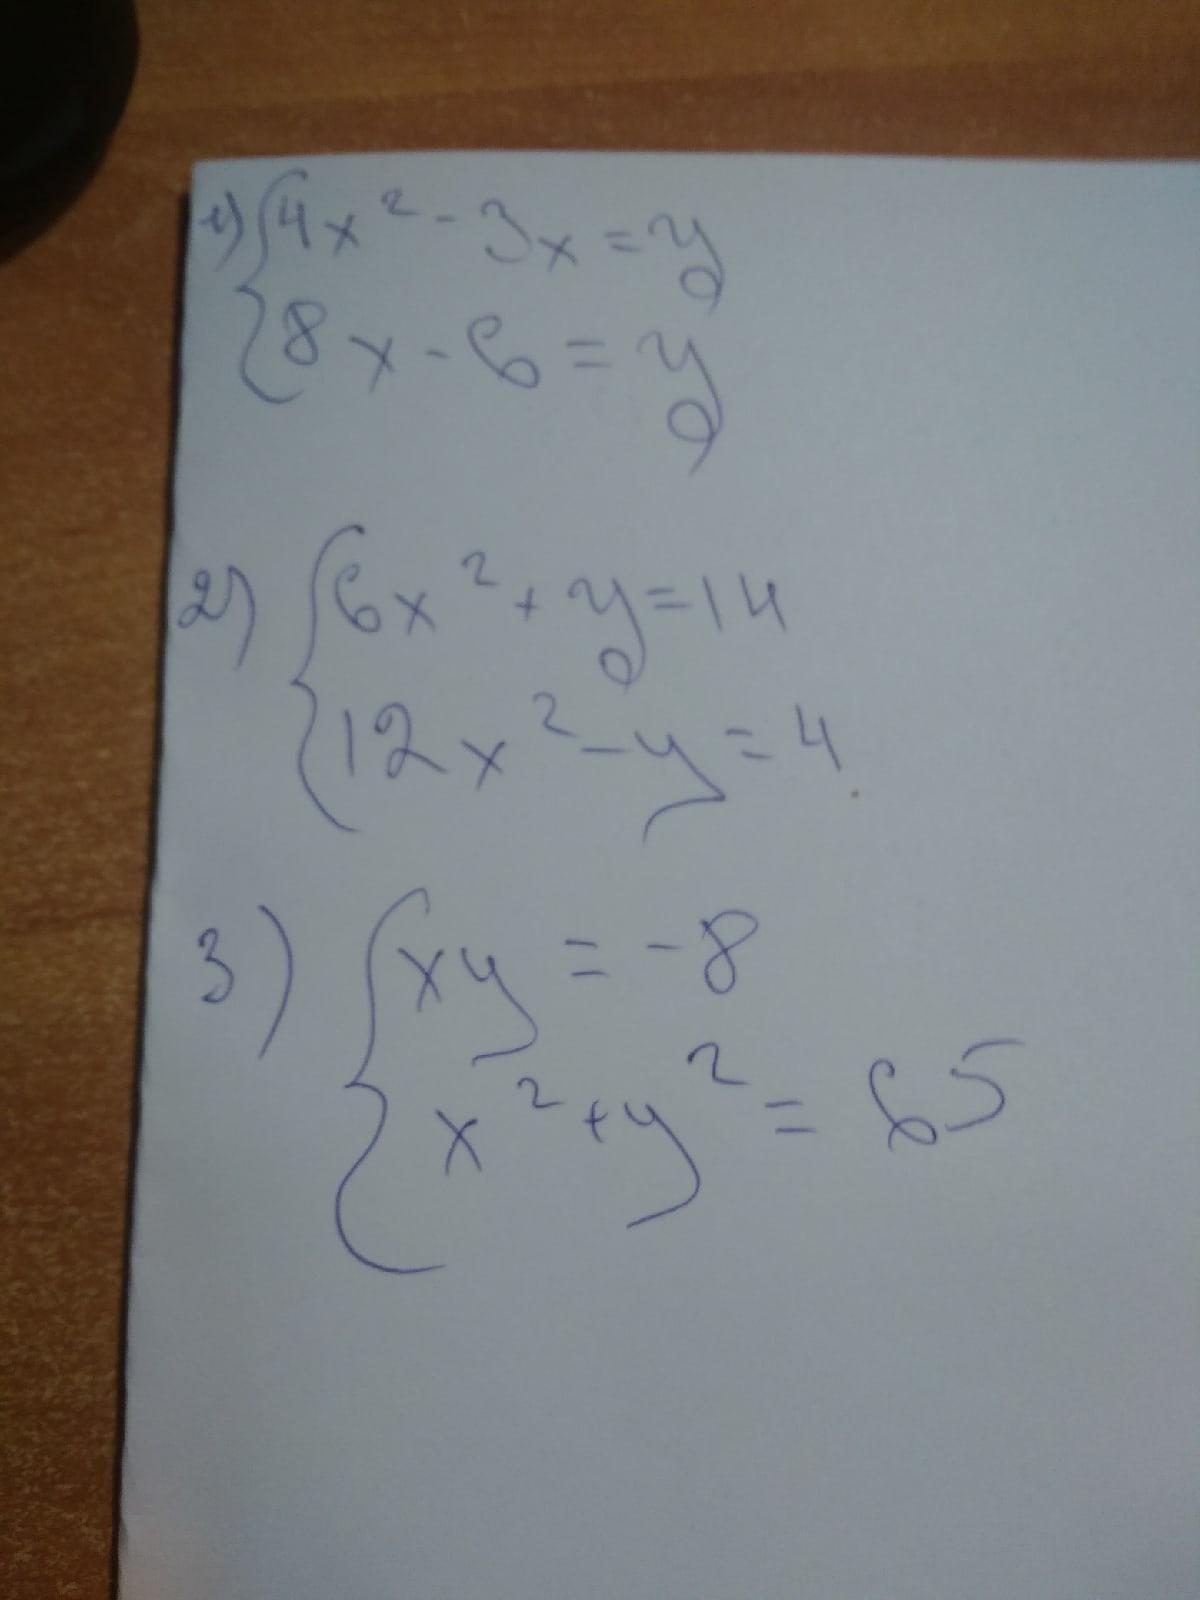 1) { 4x² - 3x = y
8x - 6 = y
2) { 6x² + y = 14
12x² - y = 4
3) { xy = -8
x² + y² = 65